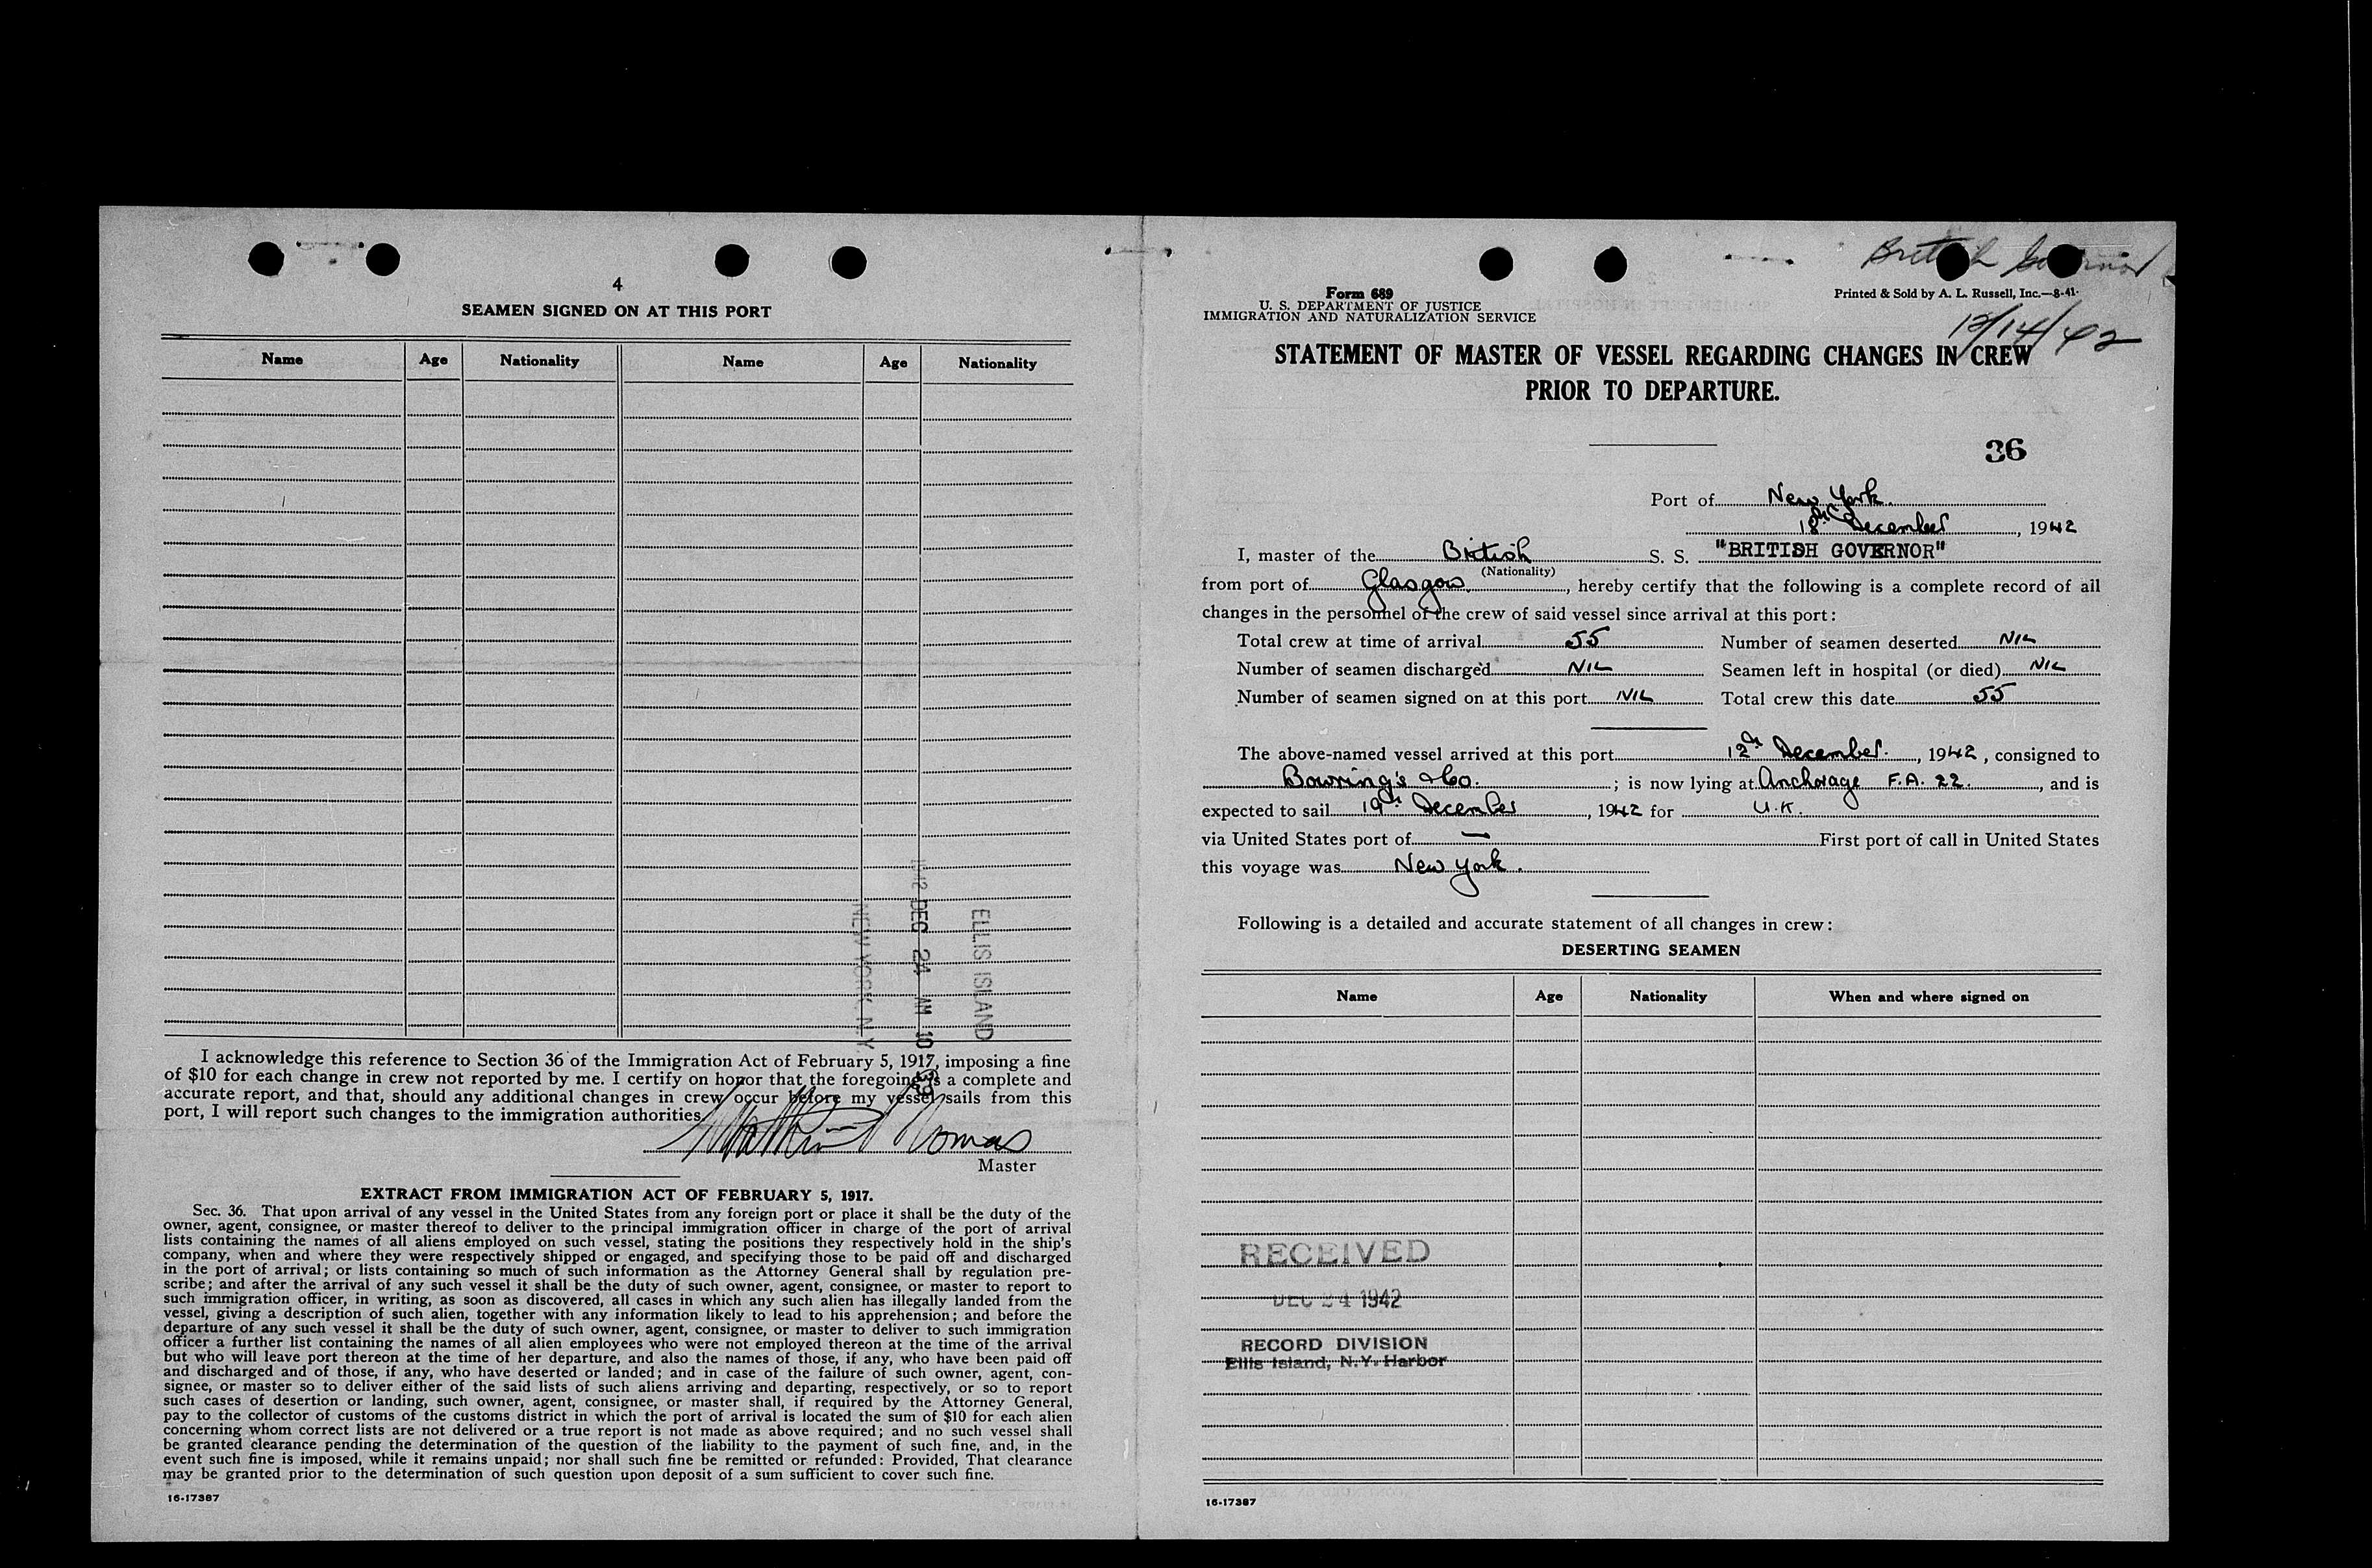 4
SEAMEN SIGNED ON AT THIS PORT
Name Age Nationality Name Age Nationality
ELLIS ISLAND
1942 DEC 24 AM 10 39
NEW YORK, N.Y.
I acknowledge this reference to Section 36 of the Immigration Act of February 5, 1917, imposing a fine
of $10 for each change in crew not reported by me. I certify on honor that the foregoing is a complete and
accurate report, and that, should any additional changes in crew occur before my vessel sails from this
port, I will report such changes to the immigration authorities
Master
EXTRACT FROM IMMIGRATION ACT OF FEBRUARY 5, 1917.
Sec. 36. That upon arrival of any vessel in the United States from any foreign port or place it shall be the duty of the
owner, agent, consignee, or master thereof to deliver to the principal immigration officer in charge of the port of arrival
lists containing the names of all aliens employed on such vessel, stating the positions they respectively hold in the ship's
company, when and where they were respectively shipped or engaged, and specifying those to be paid off and discharged
in the port of arrival; or lists containing so much of such information as the Attorney General shall by regulation pre-
scribe; and after the arrival of any such vessel it shall be the duty of such owner, agent, consignee, or master to report to
such immigration officer, in writing, as soon as discovered, all cases in which any such alien has illegally landed from the
vessel, giving a description of such alien, together with any information likely to lead to his apprehension; and before the
departure of any such vessel it shall be the duty of such owner, agent, consignee, or master to deliver to such immigration
officer a further list containing the names of all alien employees who were not employed thereon at the time of the arrival
but who will leave port thereon at the time of her departure, and also the names of those, if any, who have been paid off
and discharged and of those, if any, who have deserted or landed; and in case of the failure of such owner, agent, con-
signee, or master so to deliver either of the said lists of such aliens arriving and departing, respectively, or so to report
such cases of desertion or landing, such owner, agent, consignee, or master shall, if required by the Attorney General,
pay to the collector of customs of the customs district in which the port of arrival is located the sum of $10 for each alien
concerning whom correct lists are not delivered or a true report is not made as above required; and no such vessel shall
be granted clearance pending the determination of the question of the liability to the payment of such fine, and, in the
event such fine is imposed, while it remains unpaid; nor shall such fine be remitted or refunded: Provided, That clearance
may be granted prior to the determination of such question upon deposit of a sum sufficient to cover such fine.
16-17387
British Governor
Form 689
U. S. DEPARTMENT OF JUSTICE
IMMIGRATION AND NATURALIZATION SERVICE
Printed & Sold by A. L. Russell, Inc.—8-41
12/14/42
STATEMENT OF MASTER OF VESSEL REGARDING CHANGES IN CREW
PRIOR TO DEPARTURE.
36
Port of New York.
18th December, 1942
I, master of the British S. S. "BRITISH GOVERNOR"
(Nationality)
from port of Glasgow, hereby certify that the following is a complete record of all
changes in the personnel of the crew of said vessel since arrival at this port:
Total crew at time of arrival 55 Number of seamen deserted NIL
Number of seamen discharged NIL Seamen left in hospital (or died) NIL
Number of seamen signed on at this port NIL Total crew this date 55
The above-named vessel arrived at this port 12th December, 1942, consigned to
Bowring's & Co.; is now lying at Anchorage F.A. 22., and is
expected to sail 19th December, 1942 for U.K.
via United States port of — First port of call in United States
this voyage was New York.
Following is a detailed and accurate statement of all changes in crew:
DESERTING SEAMEN
Name Age Nationality When and where signed on
RECEIVED
DEC 24 1942
RECORD DIVISION
Ellis Island, N.Y. Harbor
16-17387